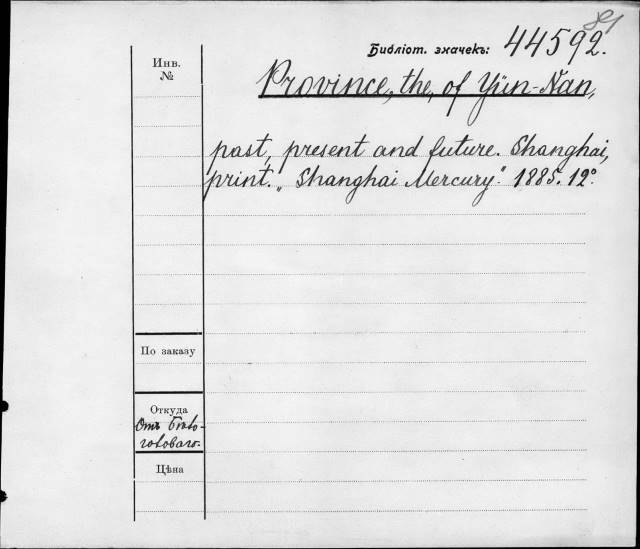 Библіот. значекъ: 44592.
Province, the, of Yün-Nan,
past, present and future. Shanghai,
print. „Shanghai Mercury“. 1885. 12°.
Инв.
№
По заказу
Откуда
Отъ
Цѣна